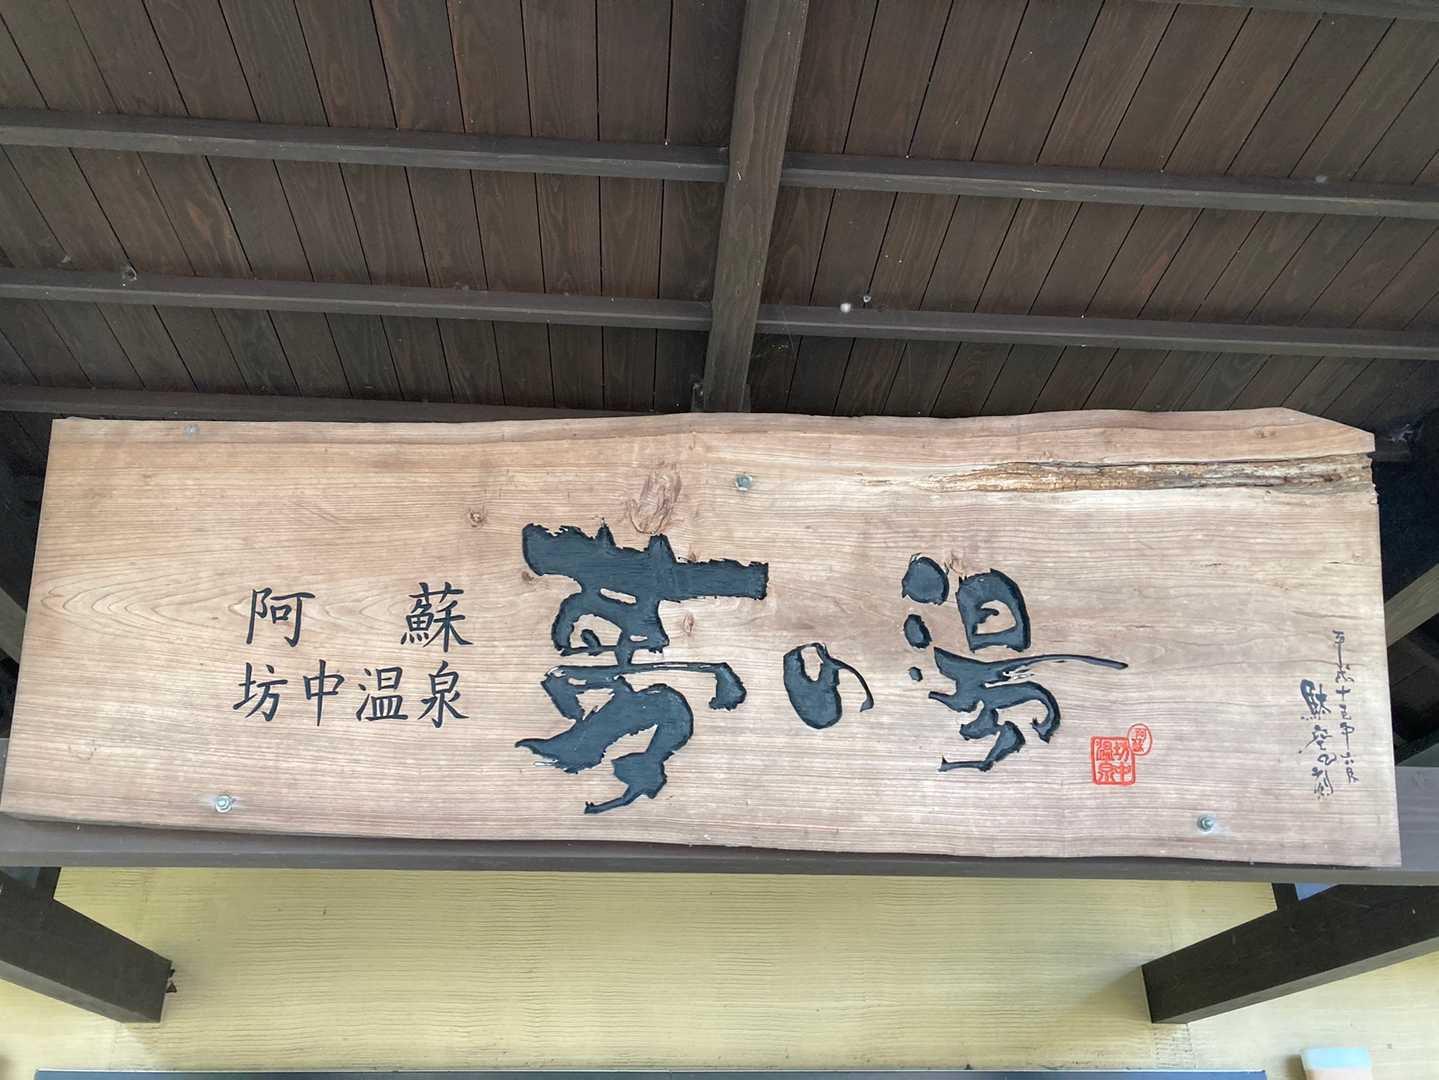 阿蘇
坊中温泉
夢の湯
阿蘇
坊中
温泉
平成十五年六月